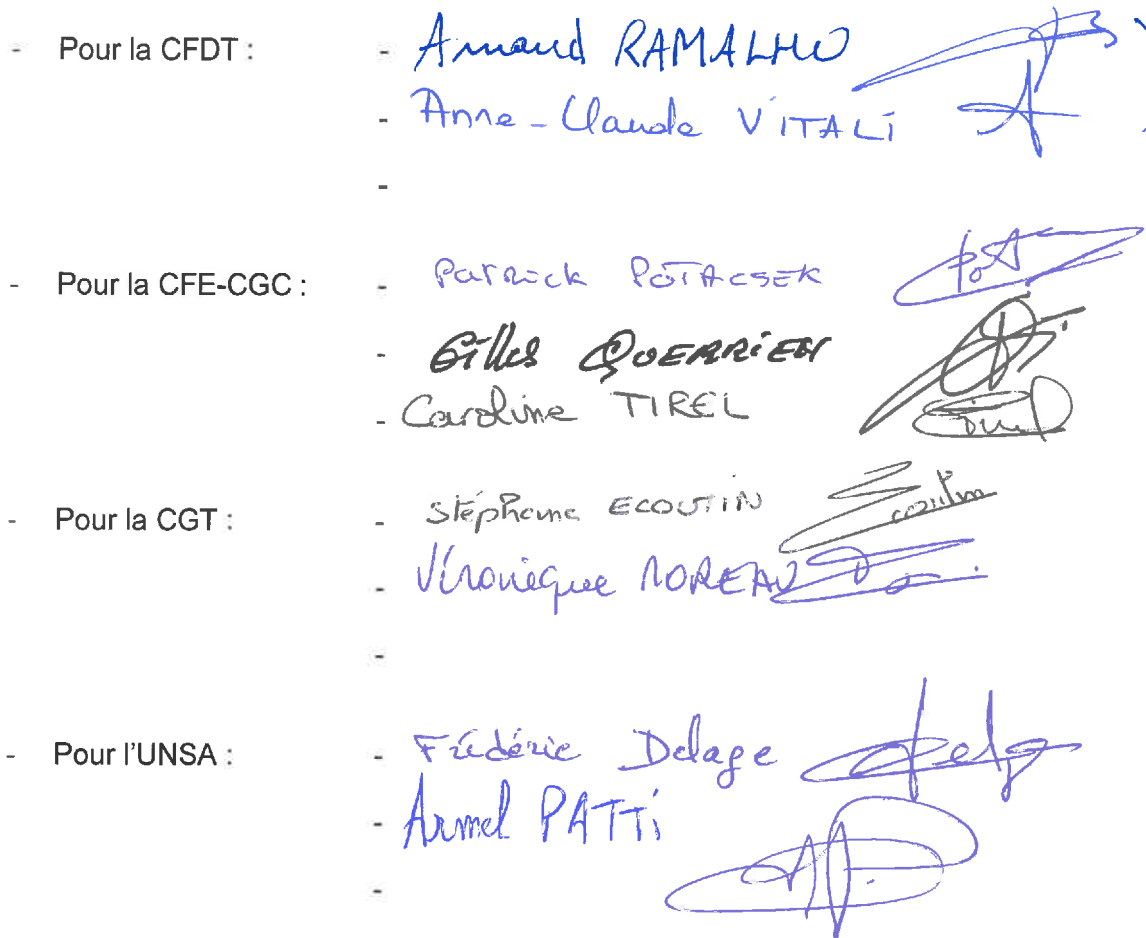 - Pour la CFDT : - Arnaud RAMALHO
- Anne-Claude VITALI
-
- Pour la CFE-CGC : - Patrick POTACSEK
- Gilles QUERRIEN
- Caroline TIREL
- Pour la CGT : - Stéphane ECOUTIN
- Véronique MOREAU
-
- Pour l'UNSA : - Frédéric Delage
- Armel PATTI
-